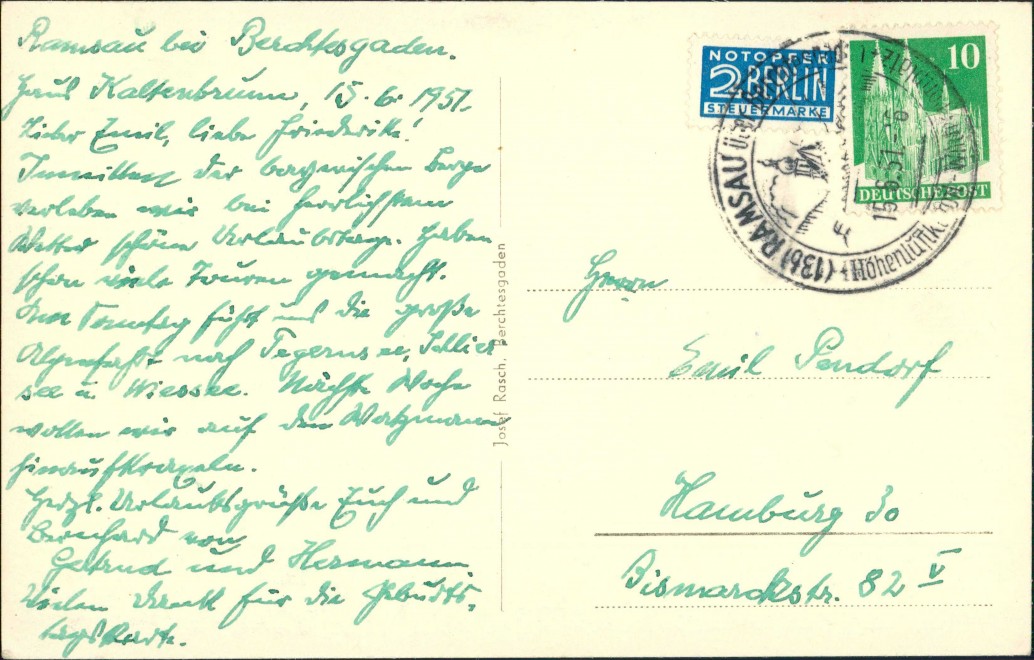 Ramsau bei Berchtesgaden.
Haus Kaltenbrunn, 15.6.1951.
Lieber Emil, liebe Friederike!
Inmitten der bayerischen Berge
verleben wir bei herrlichstem
Wetter schöne Urlaubstage. Haben
schon viele Touren gemacht.
Am Sonntag führt uns die große
Alpenfahrt nach Tegernsee, Schlier
see u. Wiessee. Nächste Woche
wollen wir auf den Watzmann
hinaufkraxeln.
Herzl. Urlaubsgrüße Euch und
Bernhard von
Gertrud und Hermann
Vielen Dank für die Geburts-
tagskarte.
Josef Rasch, Berchtesgaden
NOTOPFER
2 BERLIN
STEUERMARKE
10
DEUTSCHE POST
(13b) RAMSAU
15.6.51.
Höhenluftk
Herrn
Emil Pendorf
Hamburg 30
Bismarckstr. 82 V